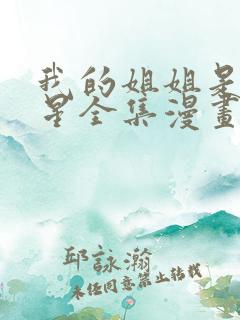 我的姐姐是
星全集漫畫
邱詠瀚
未经同意禁止转载